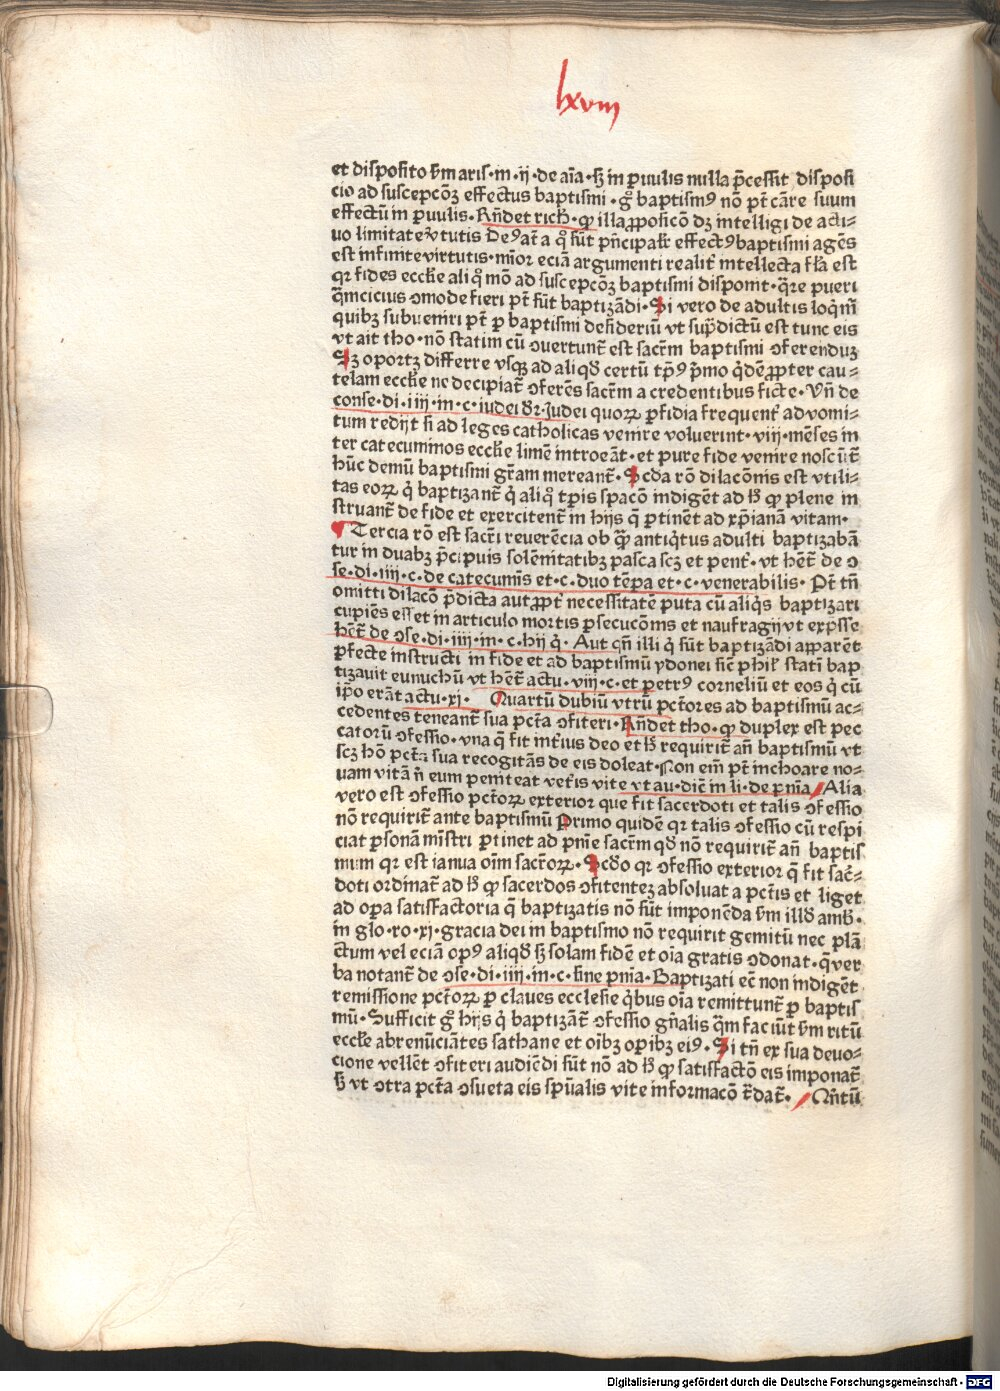 lxviij
et disposito s̄m aris·in·ij·de aīa·sꝫ in ꝑuulis nulla p̄cessit disposi
cio ad suscepcōꝫ effectus baptismi·gͦ baptismꝰ nō pt̄ cāre suum
effectū in ꝑuulis·Rn̄det rich̄·ꝙ illa ꝓposicō dꝫ intelligi de acti⸗
uo limitate v̓tutis Deꝰ aūt a quo sūt pn̄cipalr̄ effectꝰ baptismi agēs
est infinite virtutis·mīor eciā argumenti realit̓ intellecta fl̄a est
qr fides eccl̄ie aliqͦ mō ad suscepcōꝫ baptismi disponit·q̄re pueri
q̄mcicius ↄmode fieri pt̄ sūt baptizādi·Si vero de adultis loqm̄
quibꝫ subueniri pt̄ ꝑ baptismi desideriū vt sup̄dictū est tunc eis
vt ait tho·nō statim cū ↄuertunt̄ est sacr̄m baptismi ↄferenduꝫ
Sꝫ oportꝫ differre vsqꝫ ad aliqd̄ certū tp̄ꝰ p̄mo qd̄ē ꝓpter cau⸗
telam eccl̄ie ne decipiat̄ ↄferēs sacr̄m a credentibus ficte·Vn̄ de
conse·di·iiij·in·c·iudei dr̄·Judei quoꝝ ꝑfidia frequent̓ ad vomi⸗
tum redijt si ad leges catholicas venire voluerint·viij·mēses in
ter catecuminos eccl̄ie limē introeāt·et pure fide venire noscūt̄
hūc demū baptismi gr̄am mereant̄·Scd̄a rō dilacōnis est vtili⸗
tas eoꝝ q̓ baptizant̄ q̓ aliqͦ tp̄is spacō indigēt ad hͦ ꝙ plene in
struant̄ de fide et exercitent̄ in hijs q̄ ꝑtinēt ad xp̄ianā vitam·
Tercia rō est sacr̄i reuerēcia ob quā antiq̓tus adulti baptizabā
tur in duabꝫ p̄cipuis solēnitatibꝫ pasca scꝫ et pent̓·vt hēt̄ de ↄ
se·di·iiij·c·de catecumīs et·c·duo tēpa et·c·venerabilis·Pt̄ tn̄
omitti dilacō p̄dicta aut ꝓpt̓ necessitatē puta cū aliq̓s baptizari
cupiēs esset in articulo mortis ꝑsecucōnis et naufragij vt exp̄sse
hēt̄ de ↄse·di·iiij·in·c·hij q̓·Aut qn̄ illi q̓ sūt baptizādi apparēt
ꝑfecte instructi in fide et ad baptismū ydonei sic̄ phil̓ statī bap
tizauit eunuchū vt hēt̄ actu·viij·c·et petrꝰ corneliū et eos q̓ cū
ip̄o erāt actu·xi·Quartū dubiū vtrū pctōres ad baptismū ac⸗
cedentes teneant̄ sua pctā ↄfiteri·Rn̄det tho·ꝙ duplex est pec
catorū ↄfessio·vna q̄ fit int̓ius deo et hͦ requirit̄ an̄ baptismū vt
scꝫ hō pctā sua recogitās de eis doleat·Non em̄ pt̄ inchoare no⸗
uam vitā n̄ eum peniteat vet̓is vite vt au·dic̄ in li·de pn̄ia Alia
vero est ↄfessio pctōꝝ exterior que fit sacerdoti et talis ↄfessio
nō requirit̄ ante baptismū Primo quidē qr talis ↄfessio cū respi
ciat ꝑsonā mīstri ꝑtinet ad pn̄ie sacr̄m qd̄ nō requirit̄ an̄ baptis
mum qr est ianua oīm sacr̄oꝝ·Scd̄o qr ↄfessio exterior q̄ fit sac̄⸗
doti ordinat̄ ad hͦ ꝙ sacerdos ↄfitentez absoluat a pctīs et liget
ad oꝑa satisfactoria q̄ baptizatis nō sūt imponēda s̄m illd̄ amb̄·
in glo·ro·xi·gracia dei in baptismo nō requirit gemitū nec plā
ctum vel eciā opꝰ aliqd̄ sꝫ solam fidē et oīa gratis ↄdonat·q̄ ver
ba notant̄ de ↄse·di·iiij·in·c·sine pn̄ia·Baptizati ec̄ non indigēt
remissione pctōꝝ ꝑ claues ecclesie q̓bus oīa remittunt̄ ꝑ baptis
mū·Sufficit gͦ hijs q̓ baptizāt̄ ↄfessio gn̄alis quā faciūt s̄m ritū
eccl̄ie abrenūciātes sathane et oībꝫ oꝑibꝫ eiꝰ·Si tn̄ ex sua deuo⸗
cione vellēt ↄfiteri audiēdi sūt nō ad hͦ ꝙ satisfactō eis imponat̄
sꝫ vt ↄtra pctā ↄsueta eis sp̄ualis vite informacō t̄dat̄·Qn̄tū
Digitalisierung gefördert durch die Deutsche Forschungsgemeinschaft - DFG